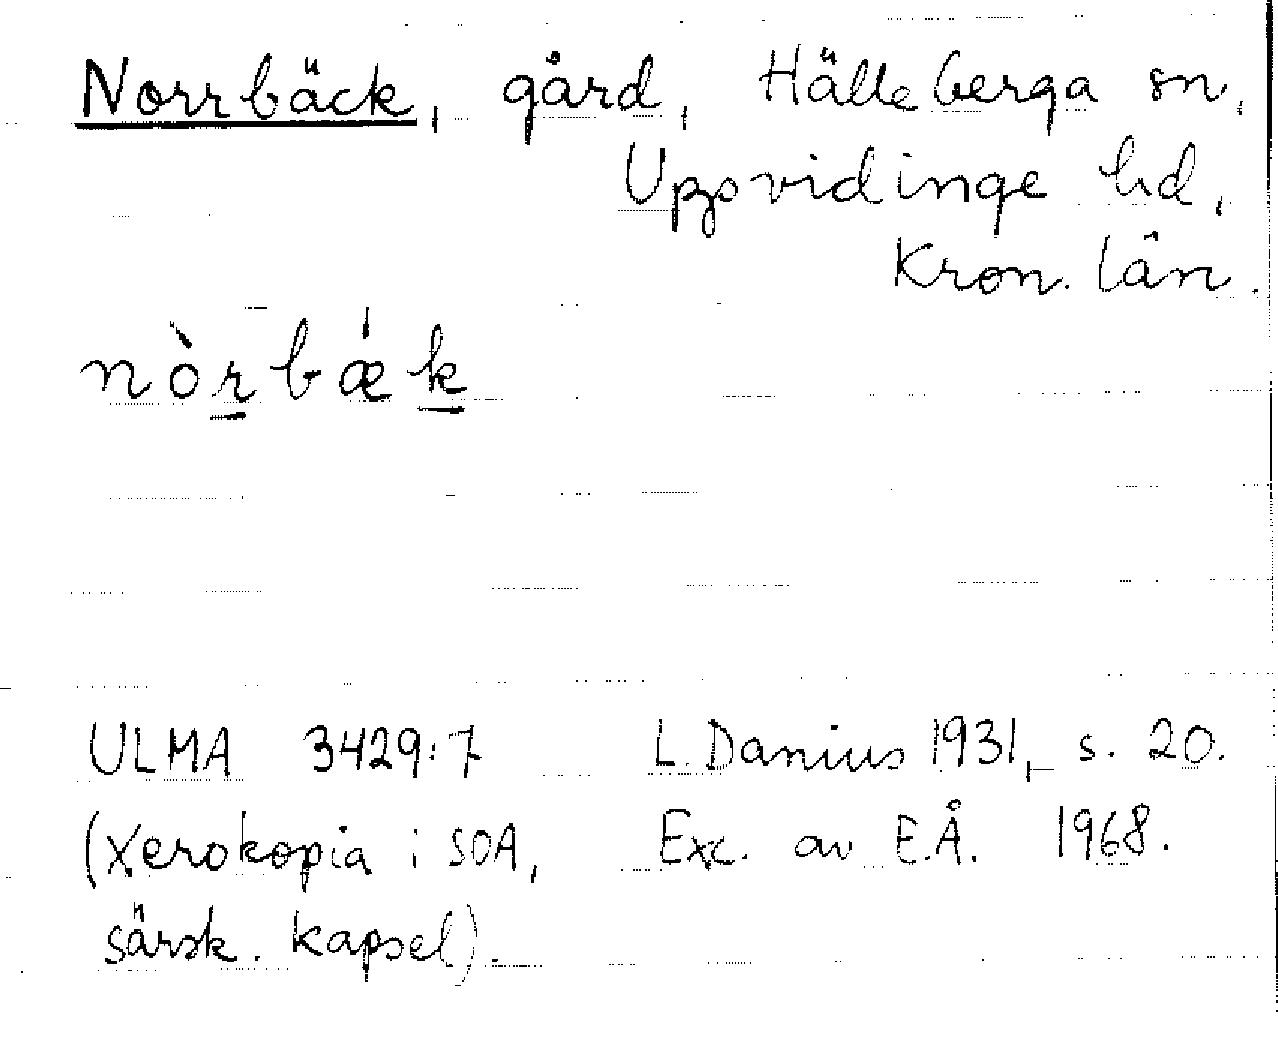 Norrbäck, gård, Hälleberga sn,
Uppvidinge hd,
Kron. län.
nòrbǽk
ULMA 3429:7 L. Danius 1931, s. 20.
(Xerokopia i SOA, Exc. av E.Å. 1968.
särsk. kapsel).